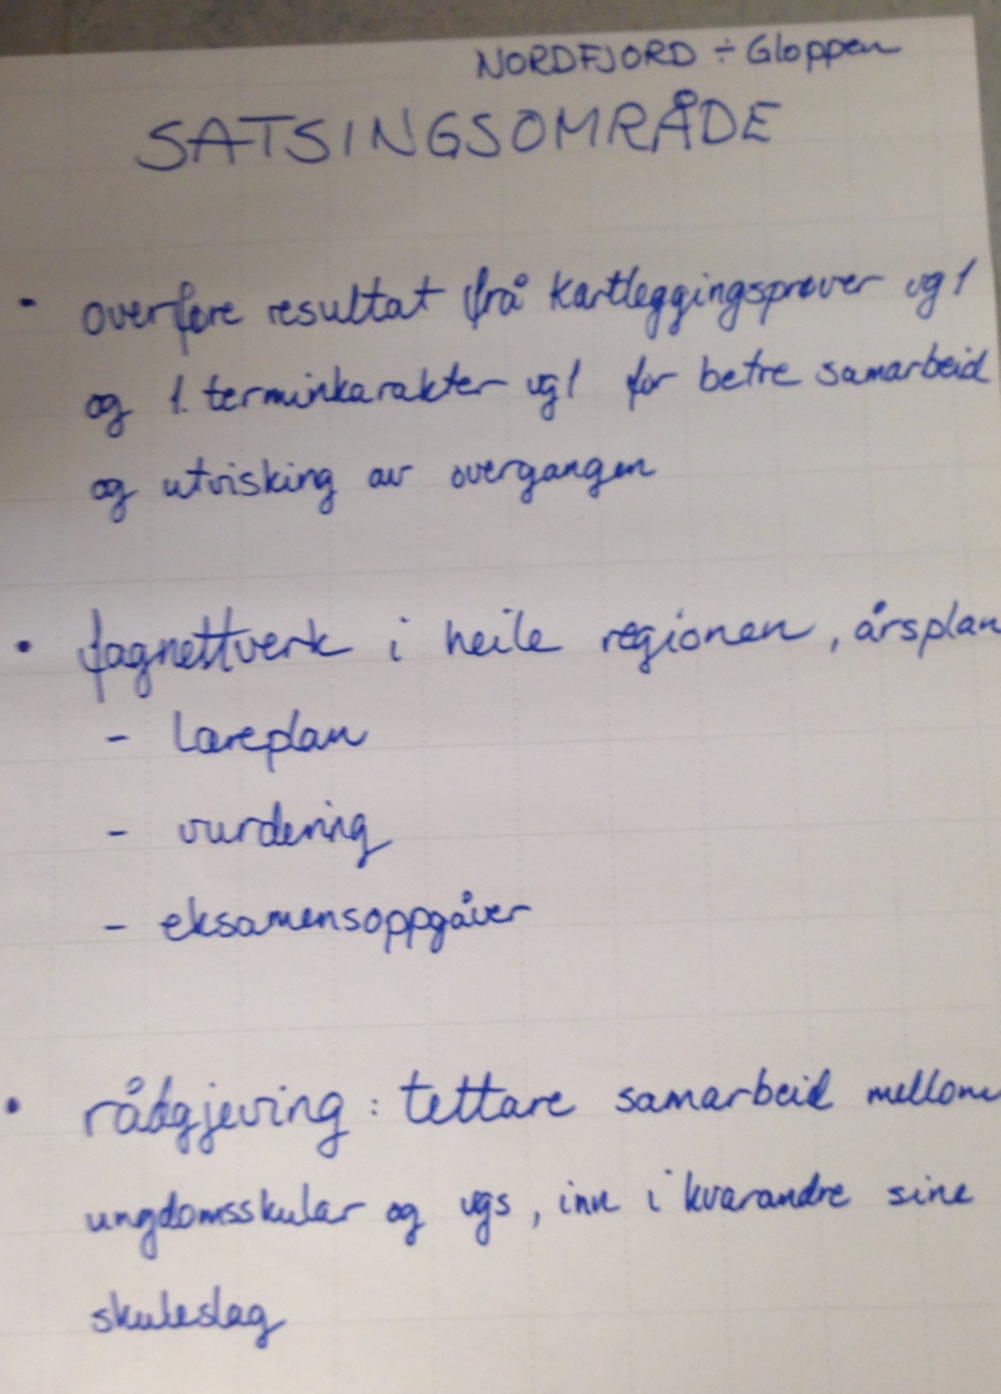 NORDFJORD ÷ Gloppen
SATSINGSOMRÅDE
• overføre resultat frå kartleggingsprøver vg1
og 1. terminkarakter vg1 for betre samarbeid
og utvisking av overgangen
• fagnettverk i heile regionen, årsplan
- læreplan
- vurdering
- eksamensoppgåver
• rådgjeving: tettare samarbeid mellom
ungdomsskular og vgs, inn i kvarandre sine
skuleslag